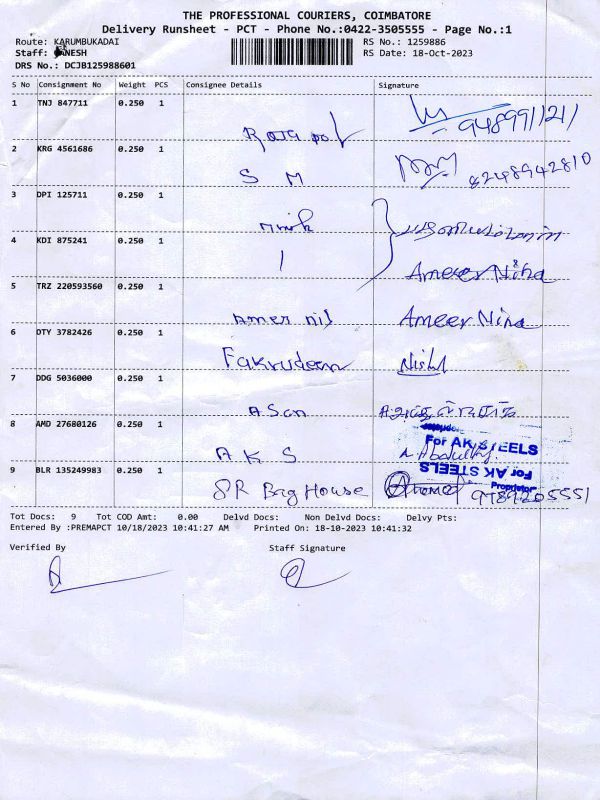 THE PROFESSIONAL COURIERS, COIMBATORE
Delivery Runsheet - PCT - Phone No.:0422-3505555 - Page No.:1
Route: KARUMBUKADAI
RS No.: 1259886
Staff: GANESH
RS Date: 18-Oct-2023
DRS No.: DCJB125988601
S No Consignment No Weight PCS Consignee Details Signature
1 TNJ 847711 0.250 1
9489911211
2 KRG 4561686 0.250 1
S M 8248942810
3 DPI 125711 0.250 1
4 KDI 875241 0.250 1
Ameer Nisha
5 TRZ 220593560 0.250 1
Amer nis Ameer Nisa
6 OTY 3782426 0.250 1
Fakrudeen
7 DDG 5036000 0.250 1
ASan
8 AMD 27680126 0.250 1
For AK STEELS
A K S
For AK STEELS
Proprietor
9 BLR 135249983 0.250 1
SR Bag House 9789205551
Tot Docs: 9 Tot COD Amt: 0.00 Delvd Docs: Non Delvd Docs: Delvy Pts:
Entered By :PREMAPCT 10/18/2023 10:41:27 AM Printed On: 18-10-2023 10:41:32
Verified By Staff Signature